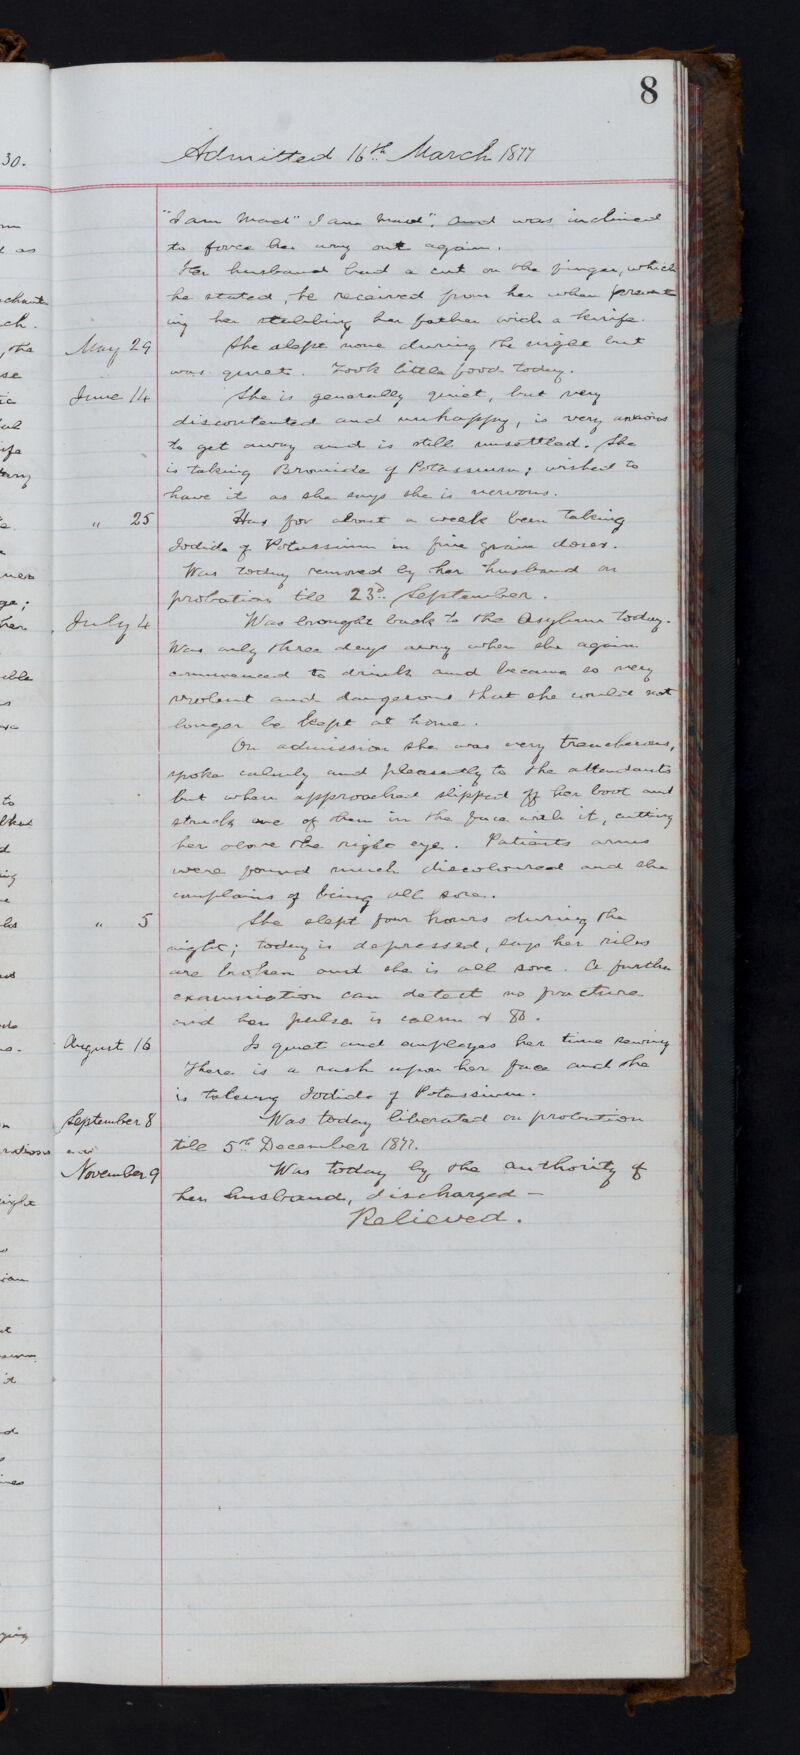 8
Admitted 16th March 1877
"I am Mad" I am Mad". and was inclined
to force her way out again.
Her husband had a cut on the finger, which
he stated, he received from her when prevent
ing her stabbing her father with a knife.
May 29 She slept none during the night but
was quiet. Took little food today.
June 14 She is generally quiet, but very
discontented and unhappy, is very anxious
to get away and is still unsettled. She
is taking Bromide of Potassium; wished to
have it as she says she is nervous.
" 25 Has for about a week been taking
Iodide of Potassium in five grain doses.
Was today removed by her husband on
probation till 23d September.
July 4 Was brought back to the Asylum today.
Was only three days away when she again
commenced to drink and became so very
violent and dangerous that she could not
longer be kept at home.
On admission she was very treacherous,
spoke calmly and pleasantly to the attendants
but when approached slipped off her boot and
struck one of them in the face with it, cutting
her above the right eye. Patients arms
were found much discoloured and she
complains of being all sore.
" 5 She slept four hours during the
night; today is depressed, says her ribs
are broken and she is all sore. A further
examination can detect no fracture
and her pulse is calm & 80.
August 16 Is quiet and employs her time sewing
There is a rash upon her face and she
is taking Iodide of Potassium.
September 8 Was today liberated on probation
till 5th December 1877.
November 9 Was today by the authority of
her husband, discharged –
Relieved.